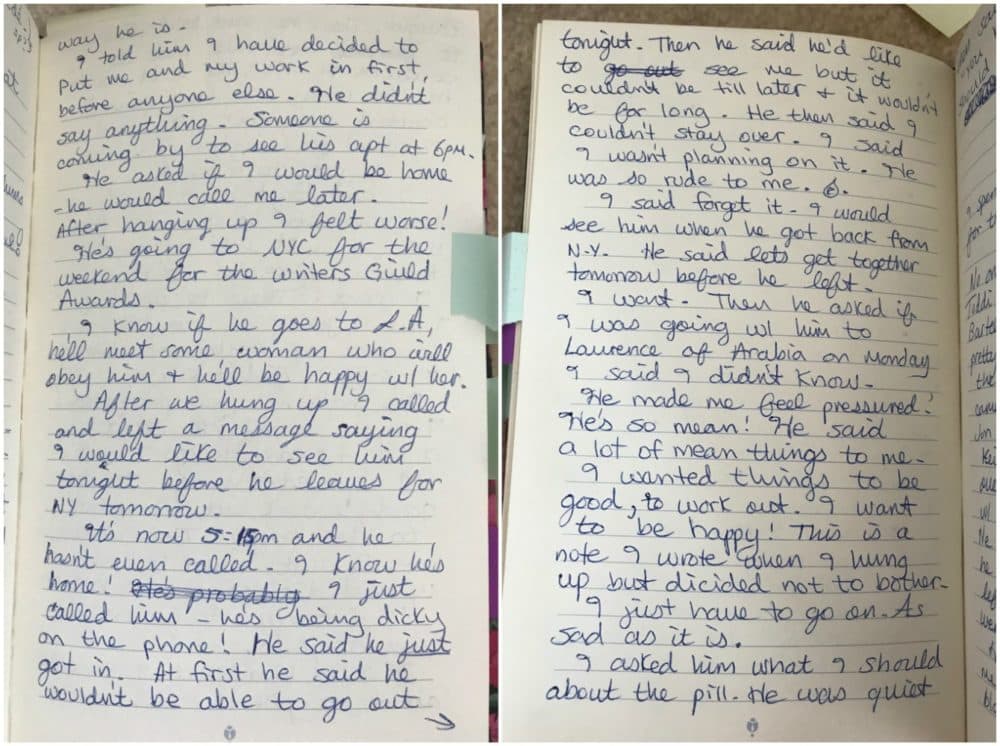 way he is.
I told him I have decided to
put me and my work in first,
before anyone else. He didn't
say anything. Someone is
coming by to see his apt at 6pm.
He asked if I would be home
-he would call me later.
After hanging up I felt worse!
He's going to NYC for the
weekend for the Writers Guild
Awards.
I know if he goes to L.A,
he'll meet some woman who will
obey him + he'll be happy w/ her.
After we hung up I called
and left a message saying
I would like to see him
tonight before he leaves for
NY tomorrow.
It's now 5:15pm and he
hasn't even called. I know he's
home! He's probably I just
called him - he's being dicky
on the phone! He said he just
got in. At first he said he
wouldn't be able to go out
tonight. Then he said he'd like
to go out see me but it
couldn't be till later + it wouldn't
be for long. He then said I
couldn't stay over. I said
I wasn't planning on it. He
was so rude to me.
I said forget it - I would
see him when he got back from
N.Y. He said lets get together
tomorrow before he left.
I want. Then he asked if
I was going w/ him to
Laurence of Arabia on Monday
I said I didn't know.
He made me feel pressured!
He's so mean! He said
a lot of mean things to me.
I wanted things to be
good, to work out. I want
to be happy! This is a
note I wrote when I hung
up but dicided not to bother.
I just have to go on. As
sad as it is.
I asked him what I should
about the pill. He was quiet